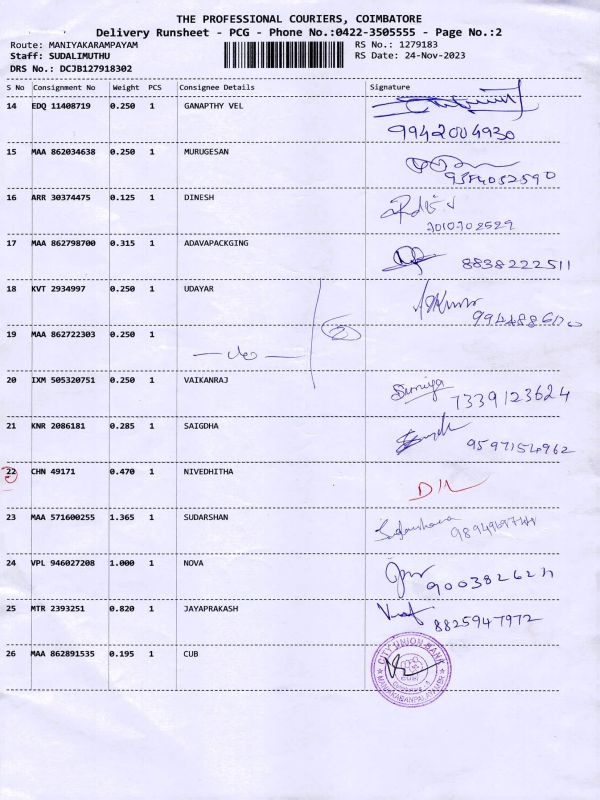 THE PROFESSIONAL COURIERS, COIMBATORE
Delivery Runsheet - PCG - Phone No.:0422-3505555 - Page No.:2
Route: MANIYAKARAMPAYAM
RS No.: 1279183
Staff: SUDALIMUTHU
RS Date: 24-Nov-2023
DRS No.: DCJB127918302
S No Consignment No Weight PCS Consignee Details Signature
14 EDQ 11408719 0.250 1 GANAPTHY VEL
9942004930
15 MAA 862034638 0.250 1 MURUGESAN
9384032590
16 ARR 30374475 0.125 1 DINESH
7010702529
17 MAA 862798700 0.315 1 ADAVAPACKGING 8838222511
18 KVT 2934997 0.250 1 UDAYAR
19 MAA 862722303 0.250 1
20 IXM 505320751 0.250 1 VAIKANRAJ Sumiya
7339123624
21 KNR 2086181 0.285 1 SAIGDHA
9597154962
22 CHN 49171 0.470 1 NIVEDHITHA
D/L
23 MAA 571600255 1.365 1 SUDARSHAN
24 VPL 946027208 1.000 1 NOVA
25 MTR 2393251 0.820 1 JAYAPRAKASH
8825947972
26 MAA 862891535 0.195 1 CUB
CITY UNION BANK